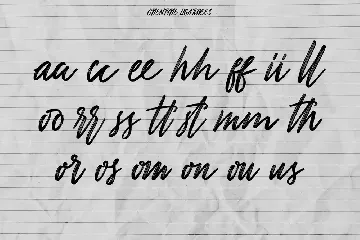 aa cc ee hh ff ii ll
oo rr ss tt st mm th
or os om on ou us